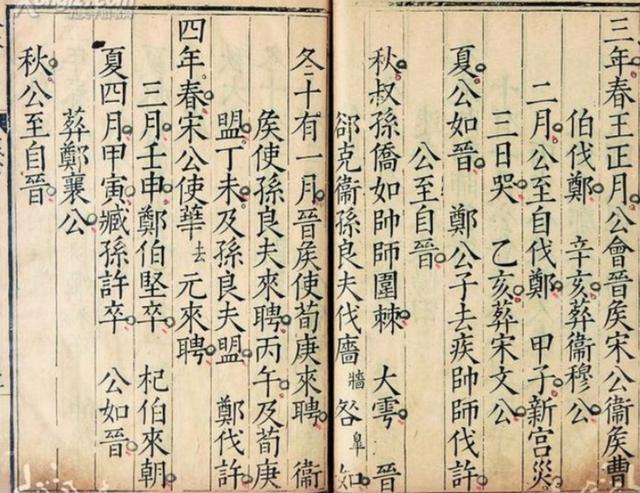 三年春王正月公會晉矦宋公衞矦曹
伯伐鄭 辛亥葬衞穆公
二月公至自伐鄭 甲子新宫災
三日哭 乙亥葬宋文公
夏公如晉 鄭公子去疾帥師伐許
公至自晉
秋叔孫僑如帥師圍棘 大雩 晉
郤克衞孫良夫伐廧牆咎臯如
冬十有一月晉矦使荀庚來聘 衞
矦使孫良夫來聘丙午及荀庚
盟丁未及孫良夫盟 鄭伐許
四年春宋公使華去元來聘
三月壬申鄭伯堅卒 杞伯來朝
夏四月甲寅臧孫許卒 公如晉
葬鄭襄公
秋公至自晉